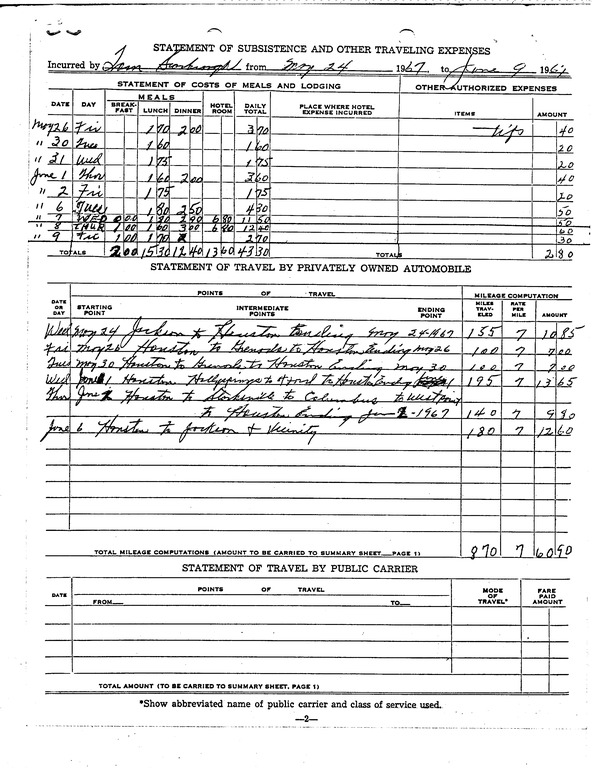 STATEMENT OF SUBSISTENCE AND OTHER TRAVELING EXPENSES
Incurred by Tom Scarbrough from May 24 1967, to June 9 1967
STATEMENT OF COSTS OF MEALS AND LODGING OTHER AUTHORIZED EXPENSES
DATE DAY MEALS BREAK-FAST LUNCH DINNER HOTEL ROOM DAILY TOTAL PLACE WHERE HOTEL EXPENSE INCURRED ITEMS AMOUNT
May 26 Fri 1 70 2 00 3 70 tips 40
" 30 Tues 1 60 1 60 20
" 31 Wed 1 75 1 75 20
June 1 Thur 1 60 2 00 3 60 40
" 2 Fri 1 75 1 75 20
" 6 Tues 1 80 2 50 4 30 50
" 7 WED 0 00 6 80 11 50 50
" 8 THUR 1 00 1 60 3 00 6 80 12 40 60
" 9 Fri 1 00 1 70 2 70 30
TOTALS 2 00 15 30 12 40 13 60 43 30 TOTALS 2 80
STATEMENT OF TRAVEL BY PRIVATELY OWNED AUTOMOBILE
DATE OR DAY POINTS OF TRAVEL MILEAGE COMPUTATION
STARTING POINT INTERMEDIATE POINTS ENDING POINT MILES TRAV-ELED RATE PER MILE AMOUNT
Wed May 24 Jackson to Houston Ending May 24-1967 155 7 10 85
Fri May 26 Houston to Grenada to Houston Ending May 26 100 7 7 00
Tues May 30 Houston to Grenada to Houston Ending May 30 100 7 7 00
Wed Houston Holly Springs to Oxford to Houston Ending 195 7 13 65
Thur June Houston to Starkville to Columbus to West Point
to Houston Ending June -1967 140 7 9 80
June 6 Houston to Jackson & Vicinity 180 7 12 60
TOTAL MILEAGE COMPUTATIONS (AMOUNT TO BE CARRIED TO SUMMARY SHEET—PAGE 1) 870 7 60 90
STATEMENT OF TRAVEL BY PUBLIC CARRIER
DATE POINTS OF TRAVEL MODE OF TRAVEL* FARE PAID AMOUNT
FROM— TO—
TOTAL AMOUNT (TO BE CARRIED TO SUMMARY SHEET, PAGE 1)
*Show abbreviated name of public carrier and class of service used.
—2—